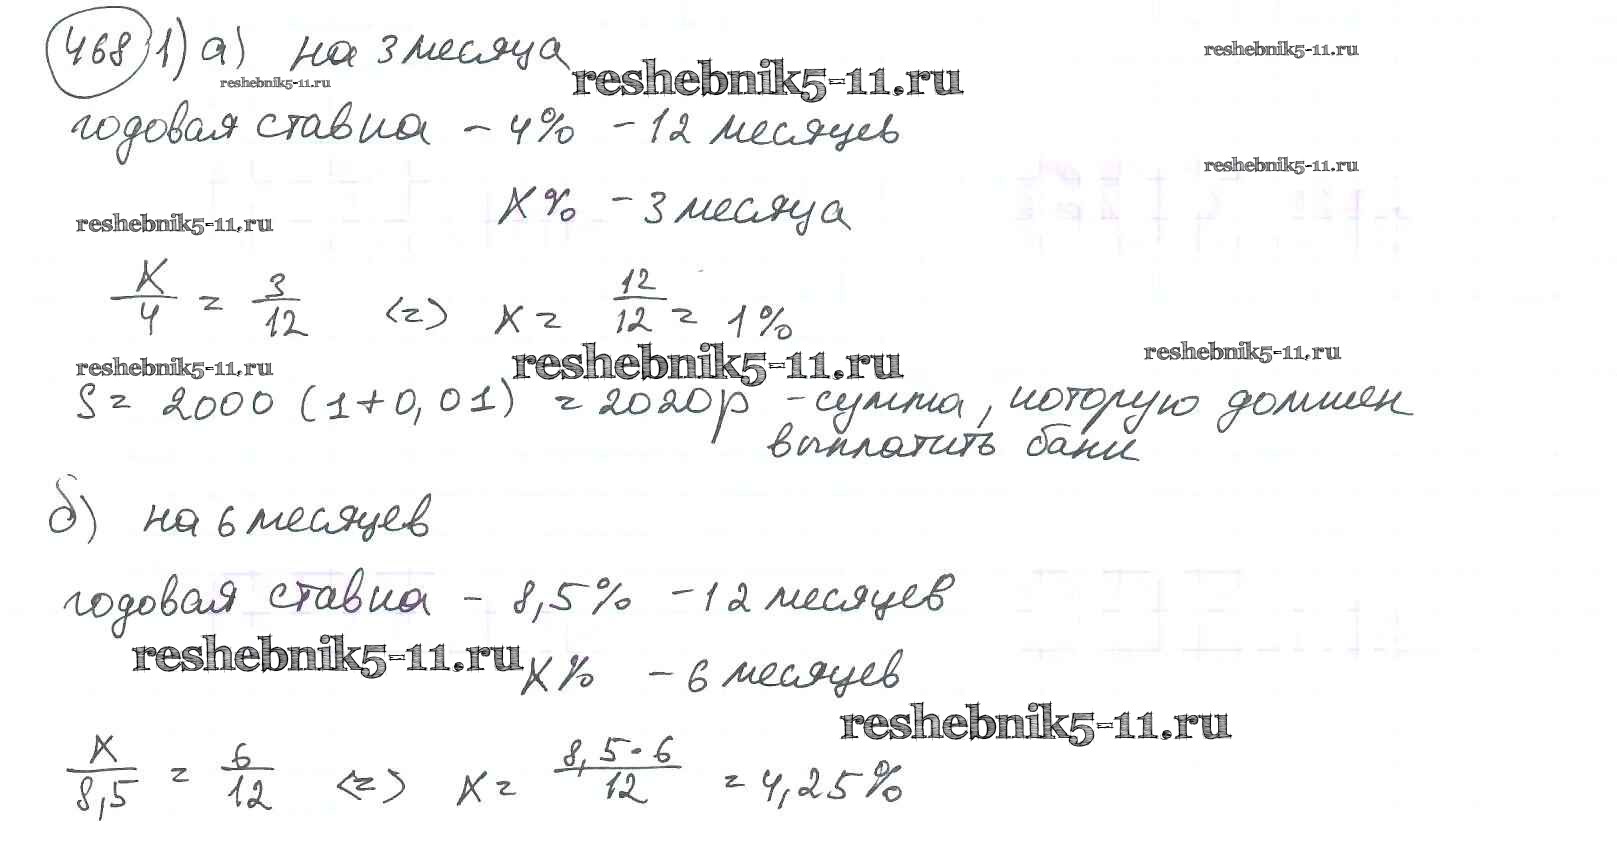 468 1) а) на 3 месяца
reshebnik5-11.ru
reshebnik5-11.ru
reshebnik5-11.ru
годовая ставка - 4% - 12 месяцев
reshebnik5-11.ru
x% - 3 месяца
reshebnik5-11.ru
x/4 = 3/12 <=> x = 12/12 = 1%
reshebnik5-11.ru
reshebnik5-11.ru
reshebnik5-11.ru
S = 2000 (1+0,01) = 2020р - сумма, которую должен
выплатить банк
б) на 6 месяцев
годовая ставка - 8,5% - 12 месяцев
reshebnik5-11.ru
x% - 6 месяцев
reshebnik5-11.ru
x/8,5 = 6/12 <=> x = 8,5·6/12 = 4,25%